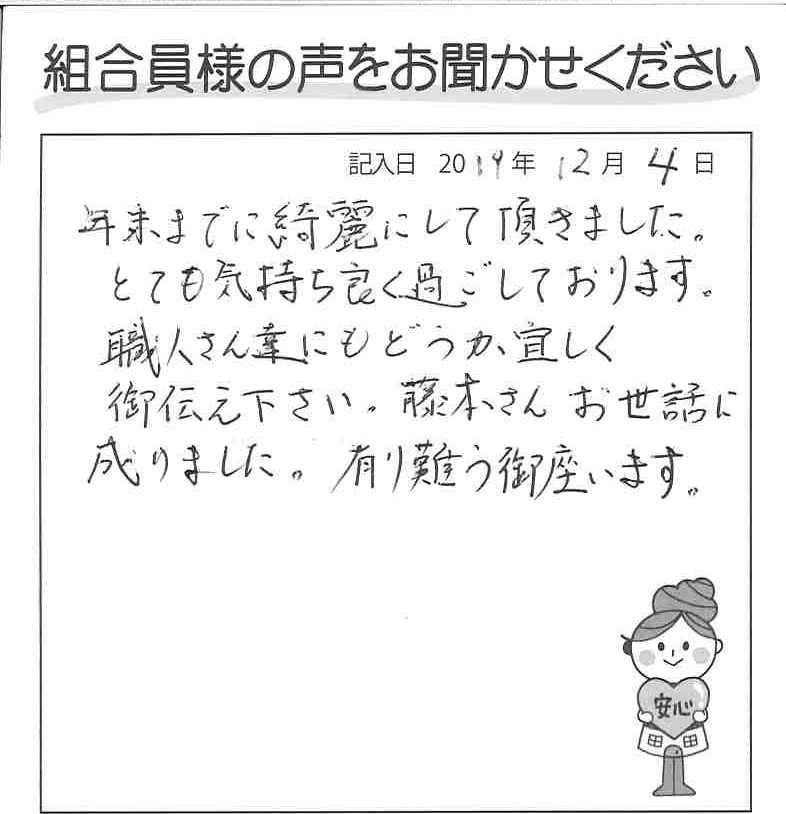 組合員様の声をお聞かせください
記入日 2019年 12月 4日
年末までに綺麗にして頂きました。
とても気持ち良く過ごしております。
職人さん達にもどうか、宜しく
御伝え下さい。藤本さん お世話に
成りました。有り難う御座います。
安心